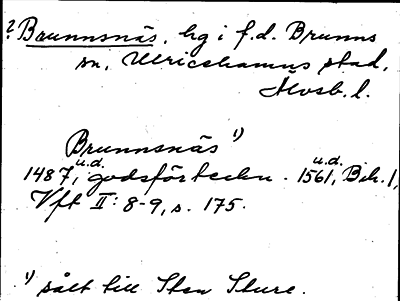 ? Brunnsnäs, hg i f.d. Brunns
sn, Ulricehamns stad,
Älvsb. l.
Brunnsnäs 1)
1487, u.d. godsförteckn. 1561, u.d. Bih. 1,
Vft II: 8-9, s. 175.
1) sålt till Sten Sture.